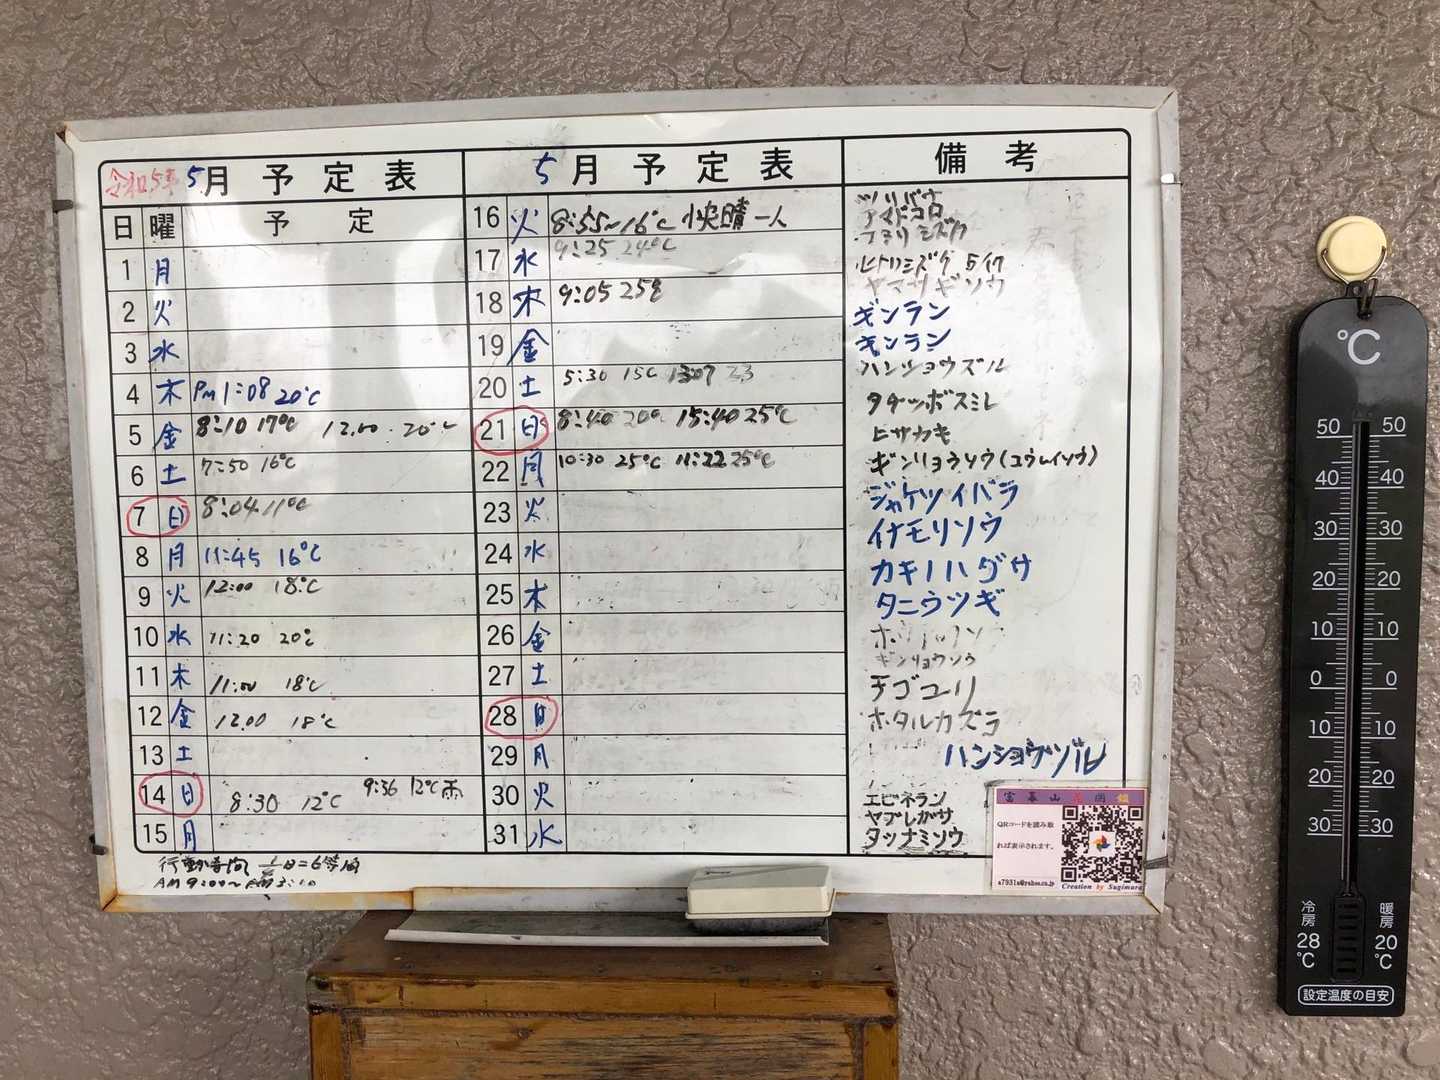 令和5年 5月 予定表
日 曜 予定
1 月
2 火
3 水
4 木 PM 1:08 20℃
5 金 8:10 17℃ 12.00 20℃
6 土 7:50 16℃
7 日 8:04 11℃
8 月 11:45 16℃
9 火 12:00 18℃
10 水 11:20 20℃
11 木 11:00 18℃
12 金 12.00 18℃
13 土
14 日 8:30 12℃ 9:36 12℃ 雨
15 月
5月 予定表
16 火 8:55~16℃ 快晴 一人
17 水 9:25 24℃
18 木 9:05 25℃
19 金
20 土 5:30 15C 1307 23
21 日 8:40 20℃ 15:40 25℃
22 月 10:30 25℃ 11:22 25℃
23 火
24 水
25 木
26 金
27 土
28 日
29 月
30 火
31 水
備考
ツリバウ
アマドコロ
フタリシズカ
ヒトリシズカ
ギンラン
キンラン
ハンショウズル
タチツボスミレ
ヒサカキ
ギンリョウソウ(ユウレイソウ)
ジャケツイバラ
イナモリソウ
カキノハグサ
タニウツギ
ギンリョウソウ
チゴユリ
ホタルカズラ
ハンショウヅル
エビネラン
ヤブレガサ
タツナミソウ
行動時間 1日=6時間
AM 9:00~PM 3:00
富幕山 花図鑑
QRコードを読み取
れば表示されます。
a7931s@yahoo.co.jp
Creation by Sugimura
℃
50 50
40 40
30 30
20 20
10 10
0 0
10 10
20 20
30 30
冷房 28℃
暖房 20℃
設定温度の目安